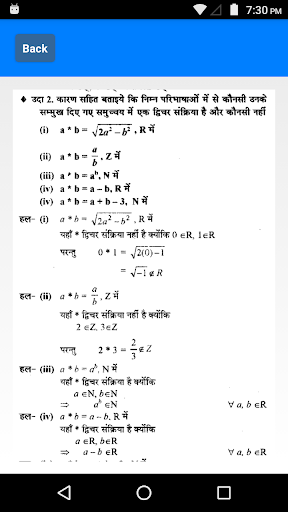 7:30 PM
Back
♦ उदा 2. कारण सहित बताइये कि निम्न परिभाषाओं में से कौनसी उनके
सम्मुख दिए गए समुच्चय में एक द्विचर संक्रिया है और कौनसी नहीं
(i) a * b = √(2a² – b²) , R में
(ii) a * b = a/b , Z में
(iii) a * b = aᵇ, N में
(iv) a * b = a – b, R में
(iv) a * b = a + b – 3, N में
हल– (i) a * b = √(2a² – b²) , R में
यहाँ * द्विचर संक्रिया नहीं है क्योंकि 0 ∈R, 1∈R
परन्तु 0 * 1 = √(2(0)–1)
= √–1 ∉ R
हल– (ii) a * b = a/b , Z में
यहाँ * द्विचर संक्रिया नहीं है क्योंकि
2 ∈Z, 3∈Z
परन्तु 2 * 3 = 2/3 ∉ Z
हल– (iii) a * b = aᵇ, N में
यहाँ * द्विचर संक्रिया है क्योंकि
a∈N, b∈N
⇒ aᵇ ∈N ∀ a, b ∈R
हल– (iv) a * b = a – b, R में
यहाँ * द्विचर संक्रिया है क्योंकि
a ∈R, b∈R
⇒ a – b ∈R ∀ a, b ∈R